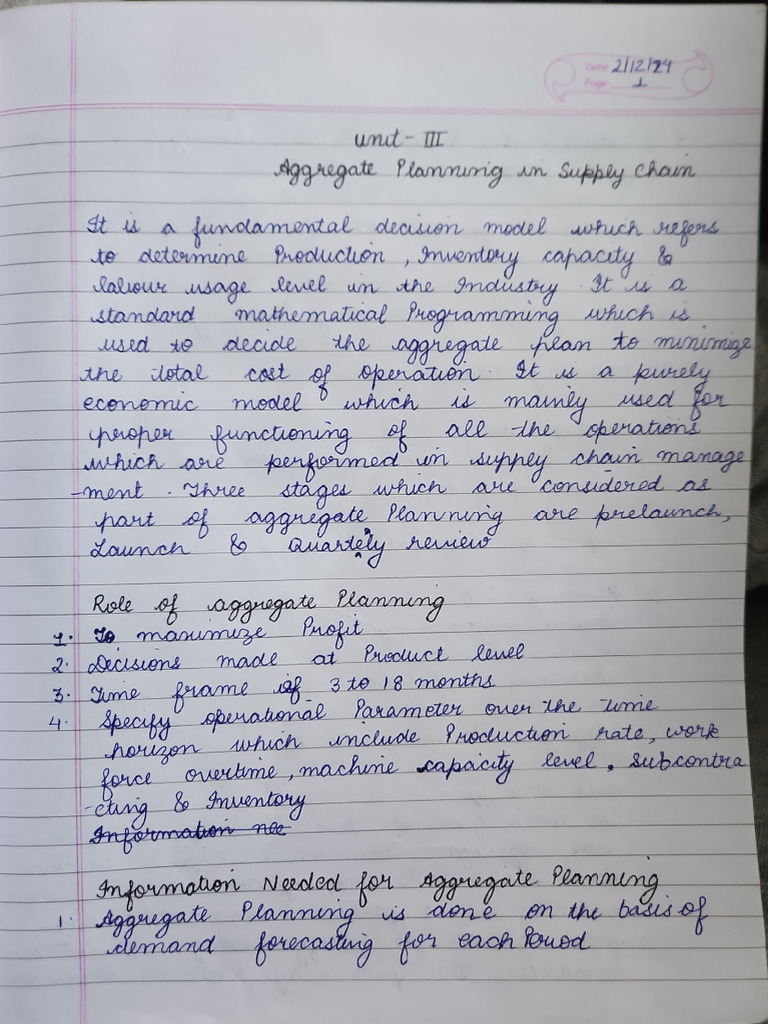 Date 2/12/24
Page 1
Unit - III
Aggregate Planning in Supply Chain
It is a fundamental decision model which refers
to determine Production, Inventory capacity &
labour usage level in the Industry. It is a
standard mathematical Programming which is
used to decide the aggregate plan to minimize
the total cost of operation. It is a purely
economic model which is mainly used for
proper functioning of all the operations
which are performed in supply chain manage
-ment. Three stages which are considered as
part of aggregate Planning are prelaunch,
Launch & Quartely review
Role of aggregate Planning
1. To maximize Profit
2. Decisions made at Product level
3. Time frame of 3 to 18 months
4. Specify operational Parameter over the time
horizon which include Production rate, work
force overtime, machine capacity level, subcontra
-cting & Inventory
Information nee
Information Needed for Aggregate Planning
1. Aggregate Planning is done on the basis of
demand forecasting for each Period